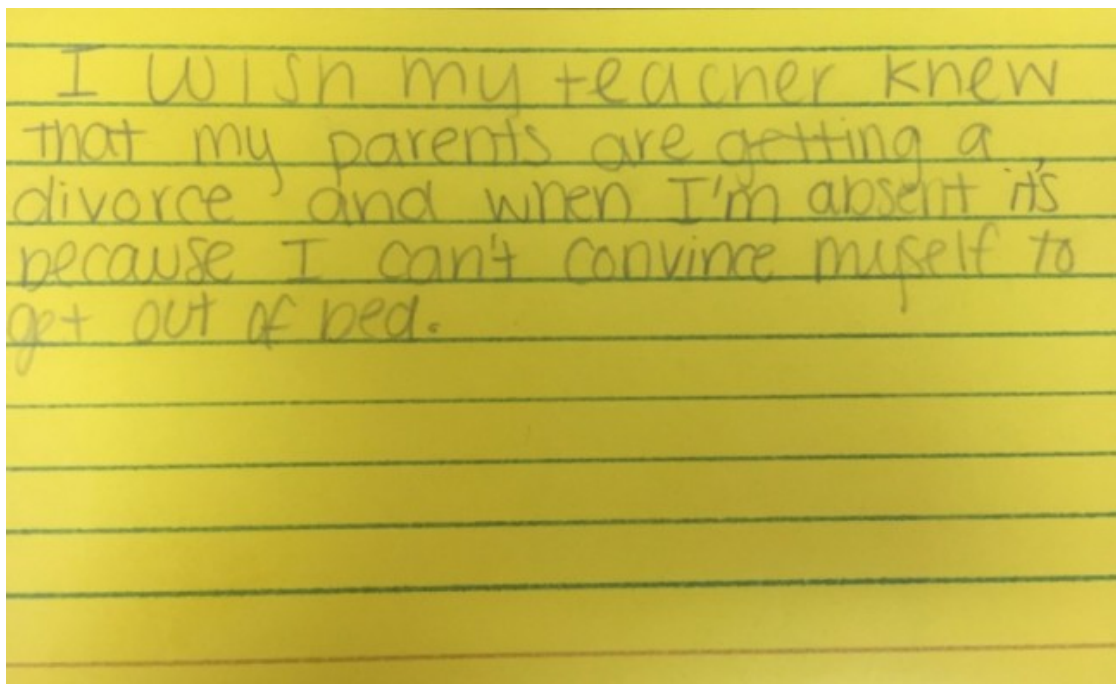 I wish my teacher knew
that my parents are getting a
divorce and when I'm absent it's
because I can't convince myself to
get out of bed.